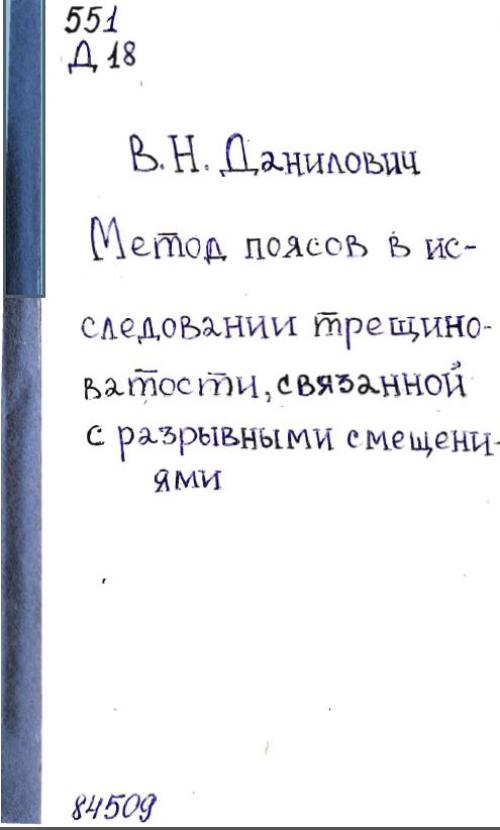 551
Д 18
В. Н. Данилович
Метод поясов в ис-
следовании трещино-
ватости, связанной
с разрывными смещени-
ями
84509